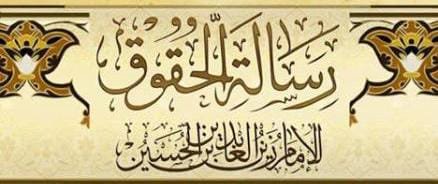 رِسَالَةُ الحُقُوق
الإمام زين العابدين بن الحسين